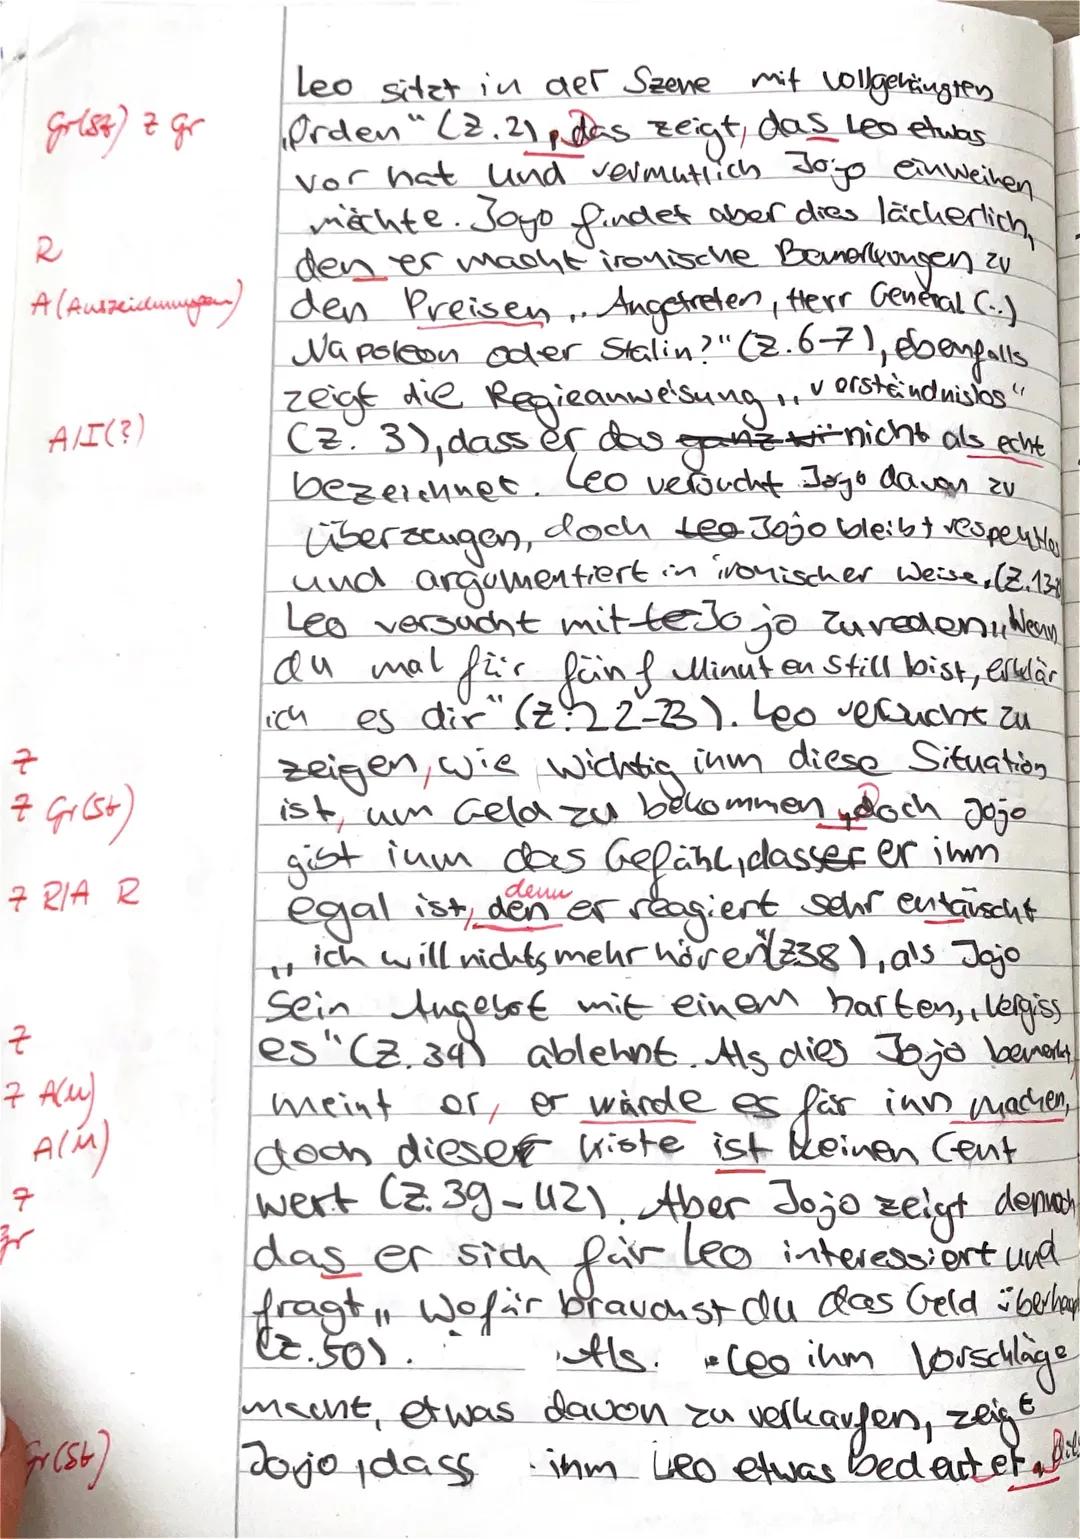 Leo sitzt in der Szene mit vollgehängten
Gr(St) Z Gr
„Orden" (Z.2), das zeigt, das Leo etwas
vor hat und vermutlich Jojo einweihen
möchte. Jojo findet aber dies lächerlich,
R
den er macht ironische Bemerkungen zu
A (Auszeichnungen)
den Preisen „Angetreten, Herr General (..)
Napoleon oder Stalin?" (Z.6-7), Ebenfalls
zeigt die Regieanweisung „vorständnislos"
A/I(?)
(Z. 3), dass er das nicht als echt
bezeichnet. Leo versucht Jojo davon zu
überzeugen, doch Leo Jojo bleibt
und argumentiert in ironischer Weise. (Z.13-
Leo versucht mit Jojo zu reden „Wenn
du mal für fünf Minuten still bist, erklär
ich es dir" (Z.22-23). Leo versucht zu
Z
zeigen, wie wichtig ihm diese Situation
Z Gr(St)
ist, um Geld zu bekommen, doch Jojo
gibt ihm das Gefühl, dass er ihm
denn
Z R/A R
egal ist, den er reagiert sehr entäuscht
„ich will nichts mehr hören" (Z38), als Jojo
sein Angebot mit einem harten „Vergiss
Z
es" (Z.34) ablehnt. Als dies Jojo bemerkt,
Z A(M)
meint er, er würde es für ihn machen,
A(M)
doch dieser Kiste ist keinen Cent
Z
wert (Z.39-42). Aber Jojo zeigt dennoch
Gr
das er sich für Leo interessiert und
fragt „Wofür brauchst du das Geld überhaup
(Z.50). Als Leo ihm Vorschläge
macht, etwas davon zu verkaufen, zeigt
Gr(St)
Jojo, dass ihm Leo etwas bedeutet,